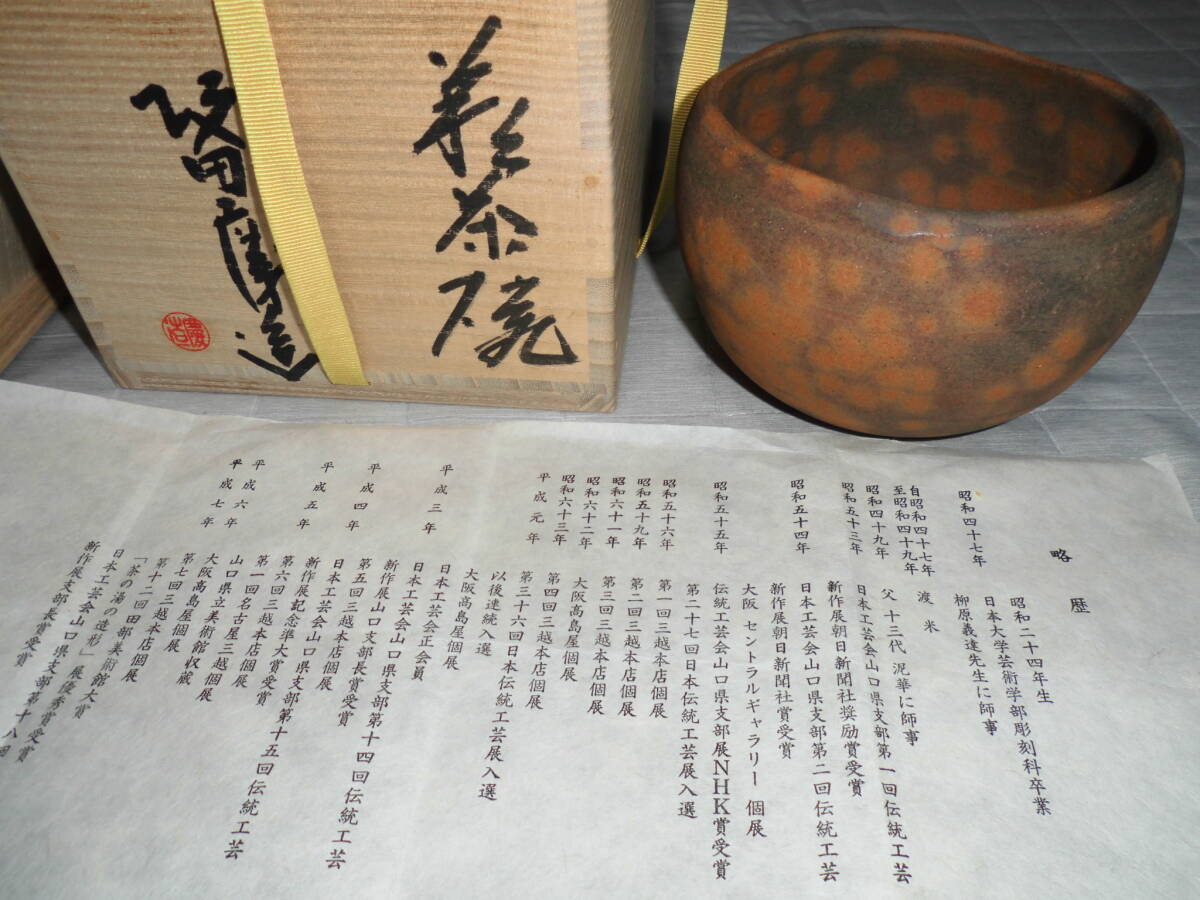 萩茶碗
坂田慶造
略歴
昭和二十四年生
昭和四十七年 日本大学芸術学部彫刻科卒業
柳原義達先生に師事
自昭和四十七年
至昭和四十九年 渡米
昭和四十九年 父 十三代 泥華に師事
昭和五十三年 日本工芸会山口県支部第一回伝統工芸
新作展朝日新聞社奨励賞受賞
昭和五十四年 日本工芸会山口県支部第二回伝統工芸
新作展朝日新聞社賞受賞
大阪 セントラルギャラリー 個展
昭和五十五年 伝統工芸会山口県支部展NHK賞受賞
第二十七回日本伝統工芸展入選
昭和五十六年 第一回三越本店個展
昭和五十九年 第二回三越本店個展
昭和六十一年 第三回三越本店個展
昭和六十二年 大阪高島屋個展
昭和六十三年 第四回三越本店個展
平成元年 第三十六回日本伝統工芸展入選
以後連続入選
大阪高島屋個展
平成三年 日本工芸会正会員
日本工芸会山口県支部第十四回伝統工芸
新作展山口支部長賞受賞
平成四年 第五回三越本店個展
平成五年 日本工芸会山口県支部第十五回伝統工芸
新作展記念準大賞受賞
第六回三越本店個展
第一回名古屋三越個展
山口県立美術館収蔵
平成六年 大阪高島屋個展
平成七年 第七回三越本店個展
第十二回田部美術館大賞
「茶の湯の造形」展優秀賞受賞
日本工芸会山口県支部第十八回
新作展支部長賞受賞